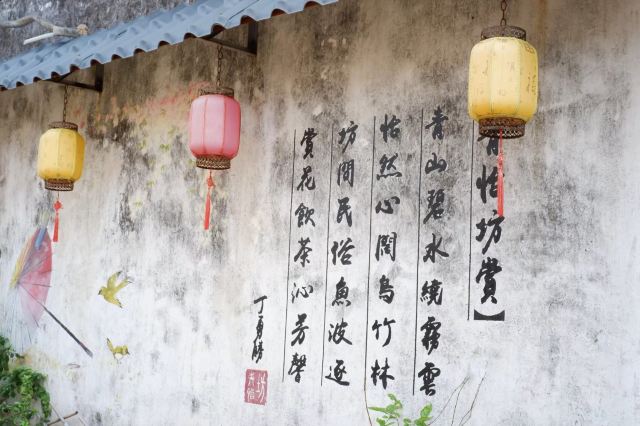 青怡坊賞】
青山碧水繞霧雲
怡然心闊鳥竹林
坊間民俗魚波逐
賞花飲茶沁芳馨
丁勇勝